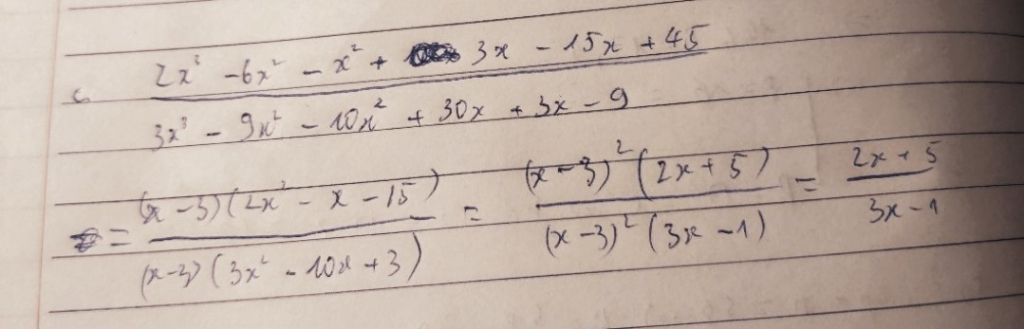 c. 2x³ - 6x² - x² + 3x - 15x + 45
3x³ - 9x² - 10x² + 30x + 3x - 9
= (x-3)(2x² - x - 15) / (x-3)(3x² - 10x + 3) = (x-3)²(2x+5) / (x-3)²(3x-1) = 2x+5 / 3x-1